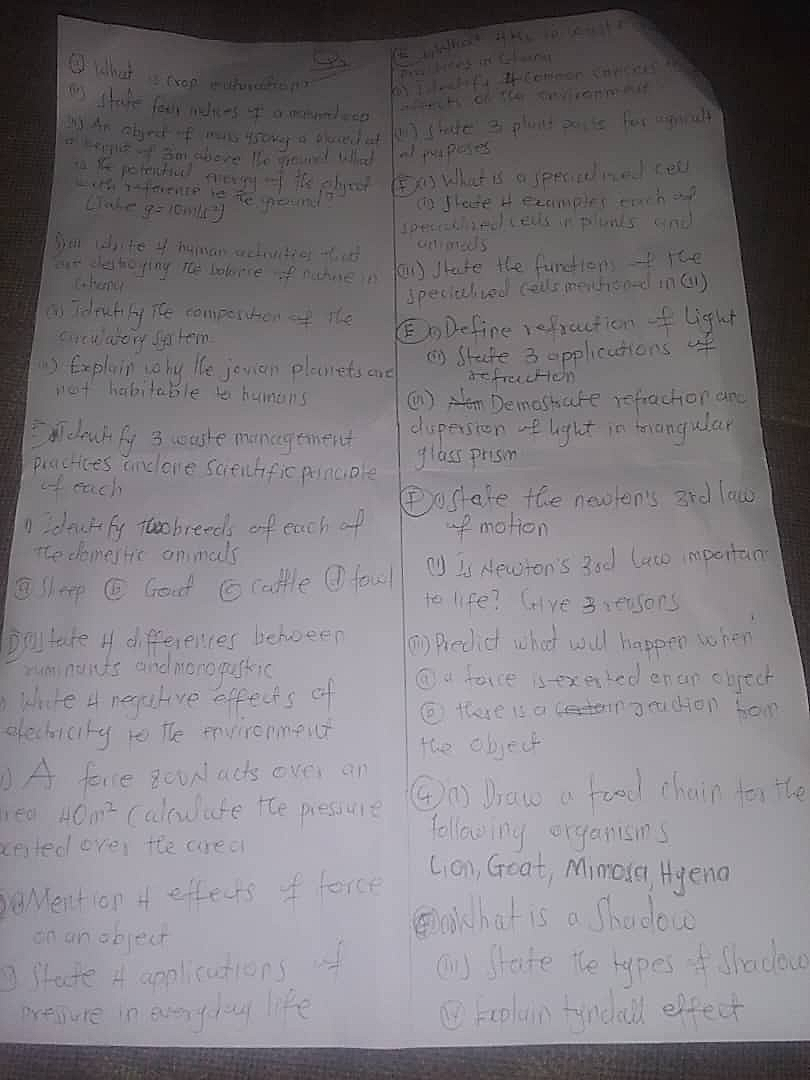 ① What is crop maturation?
(ii) State four indices of a matured crop
(iii) An object of mass 450kg is placed at
a height of 3m above the ground. What
is the potential energy of the object
with reference to the ground?
(Take g=10m/s²)
Write 4 human activities that
are destroying the balance of nature in
Ghana
(ii) Identify the composition of the
circulatory system.
(iii) Explain why the jovian planets are
not habitable to humans
Identify 3 waste management
practices and one scientific principle
of each
Identify two breeds of each of
the domestic animals
ⓐ Sheep ⓑ Goat ⓒ Cattle ⓓ fowl
D(i) State 4 differences between
ruminants and monogastric
Write 4 negative effects of
electricity to the environment
A force 800N acts over an
area 40m² Calculate the pressure
exerted over the area
Mention 4 effects of force
on an object
State 4 applications of
pressure in everyday life
What
practices in Ghana
Identify 4 common
effects on the environment
State 3 plant parts for
purposes
(i) What is a specialized cell
(ii) State 4 examples each of
specialized cells in plants and
animals
(iii) State the functions of the
specialized cells mentioned in (ii)
Ⓔ (i) Define refraction of light
(ii) State 3 applications of
refraction
(iii) Demostrate refraction and
dispersion of light in triangular
glass prism
Ⓕ (i) State the newton's 3rd law
of motion
(ii) Is Newton's 3rd law important
to life? Give 3 reasons
(iii) Predict what will happen when
ⓐ a force is exerted on an object
ⓑ there is a reaction from
the object
Ⓖ (i) Draw a food chain for the
following organisms
Lion, Goat, Mimosa, Hyena
What is a Shadow
(iii) State the types of Shadow
(iv) Explain tyndall effect